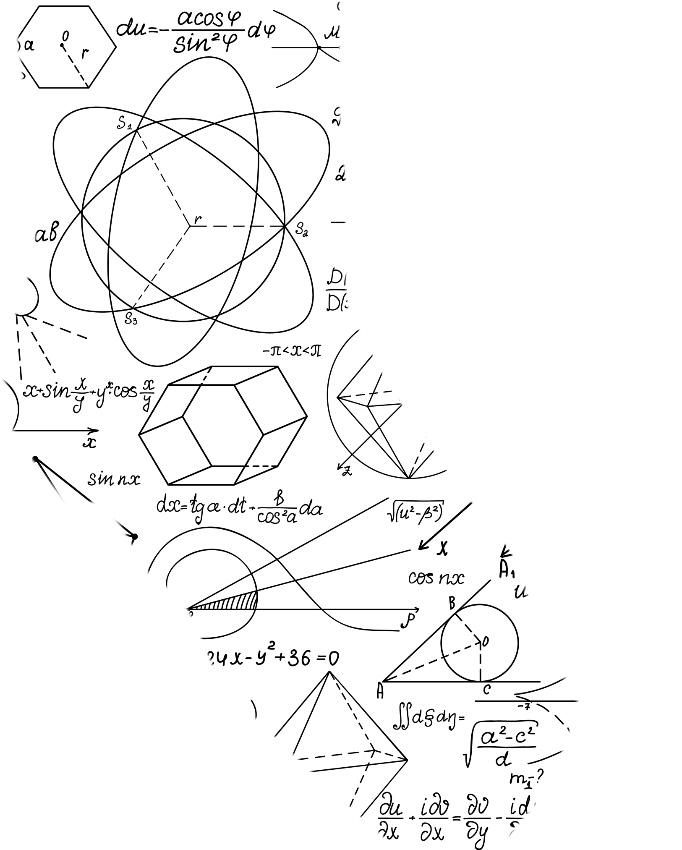 a
O
r
du=-acosφ/sin²φ dφ
M
S₁
r
S₂
S₃
ab
2
-π<x<π
x+sin x/y+y²·cos x/y
x
z
sin nx
dx=tgα·dt+b/cos²a da
√(u²-β²)
x
cos nx
A₁
u
B
O
A
C
ρ
4x-y²+36=0
-7
∬dξdη=
√a²-c²/d
m₁-?
∂u/∂x+i∂v/∂x=∂v/∂y-